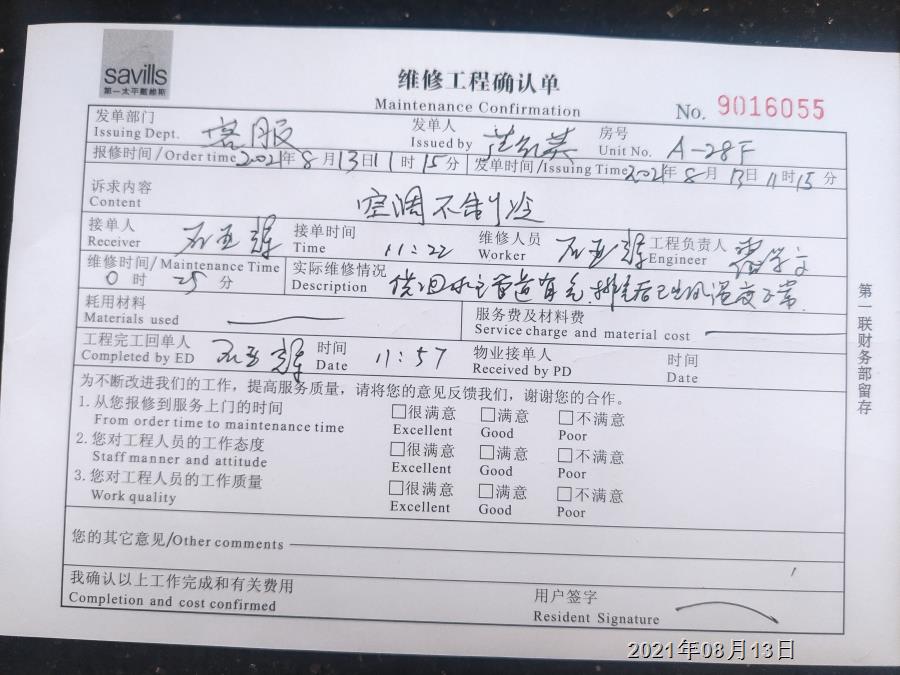 savills
第一太平戴维斯
维修工程确认单
Maintenance Confirmation
No. 9016055
发单部门 客服 发单人 房号
Issuing Dept. Issued by Unit No. A-28F
报修时间/Order time 2021年8月13日11时15分 发单时间/Issuing Time 2021年8月13日11时15分
诉求内容 空调不制冷
Content
接单人 石亚辉 接单时间 11:22 维修人员 石亚辉 工程负责人
Receiver Time Worker Engineer
维修时间/Maintenance Time 实际维修情况
0时25分 Description 供回水主管道有气,排气后已出风温度正常.
耗用材料 服务费及材料费
Materials used Service charge and material cost
工程完工回单人 石亚辉 时间 11:57 物业接单人 时间
Completed by ED Date Received by PD Date
为不断改进我们的工作,提高服务质量,请将您的意见反馈我们,谢谢您的合作。
1.从您报修到服务上门的时间 □很满意 □满意 □不满意
From order time to maintenance time Excellent Good Poor
2.您对工程人员的工作态度 □很满意 □满意 □不满意
Staff manner and attitude Excellent Good Poor
3.您对工程人员的工作质量 □很满意 □满意 □不满意
Work quality Excellent Good Poor
您的其它意见/Other comments
我确认以上工作完成和有关费用 用户签字
Completion and cost confirmed Resident Signature
第一联财务部留存
2021年08月13日